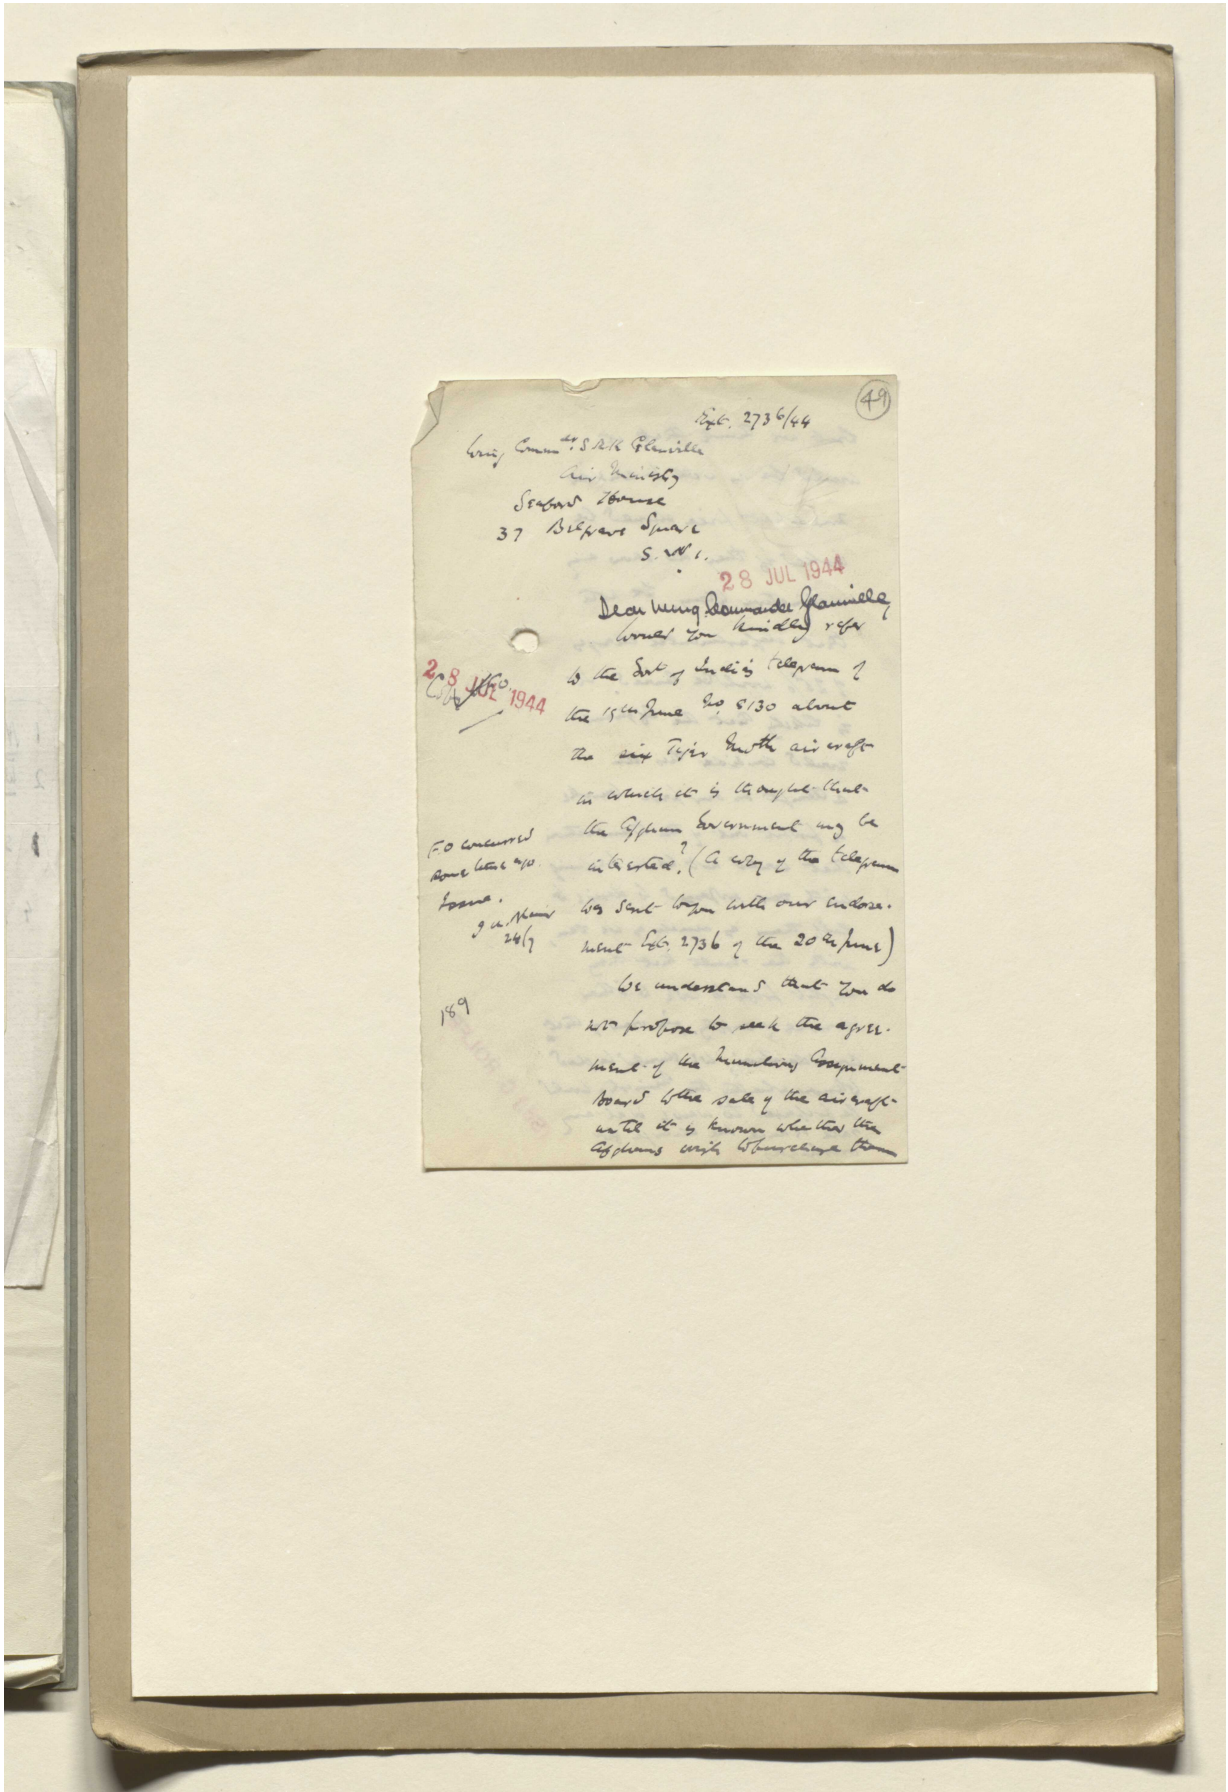 49
Ext. 2736/44
Wing Commdr. S.R.K. Glanville
Air Ministry
Seaford House
37 Belgrave Square
S.W.1.
28 JUL 1944
Dear Wing Commander Glanville,
Would you kindly refer
to the Govt of India's telegram of
28 JUL 1944
Copy
the 15th June No. 8130 about
the six Tiger Moth aircraft
in which it is thought that
the Afghan Government may be
FO concurred
some time ago.
Issue.
24/7
interested? (A copy of the telegram
was sent to you with our endorse-
ment Ext. 2736 of the 20th June)
We understand that you do
189
not propose to seek the agree-
ment of the Munitions Assignment
Board to the sale of the aircraft
until it is known whether the
Afghans wish to purchase them